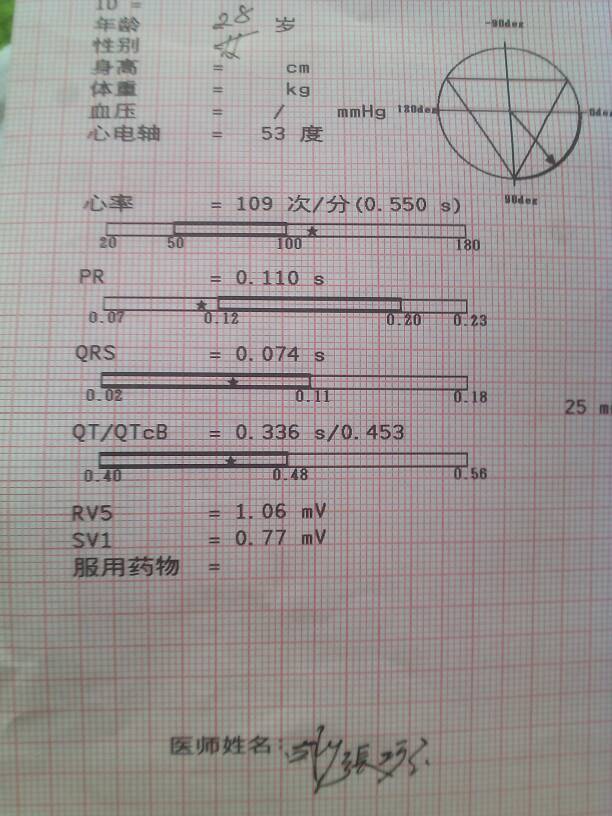 ID =
年龄 28 岁
性别 女
身高 = cm
体重 = kg
血压 = / mmHg
心电轴 = 53 度
-90deg
180deg
0deg
90deg
心率 = 109 次/分(0.550 s)
20 50 100 180
PR = 0.110 s
0.07 0.12 0.20 0.23
QRS = 0.074 s
0.02 0.11 0.18
25 m
QT/QTcB = 0.336 s/0.453
0.40 0.48 0.56
RV5 = 1.06 mV
SV1 = 0.77 mV
服用药物 =
医师姓名: